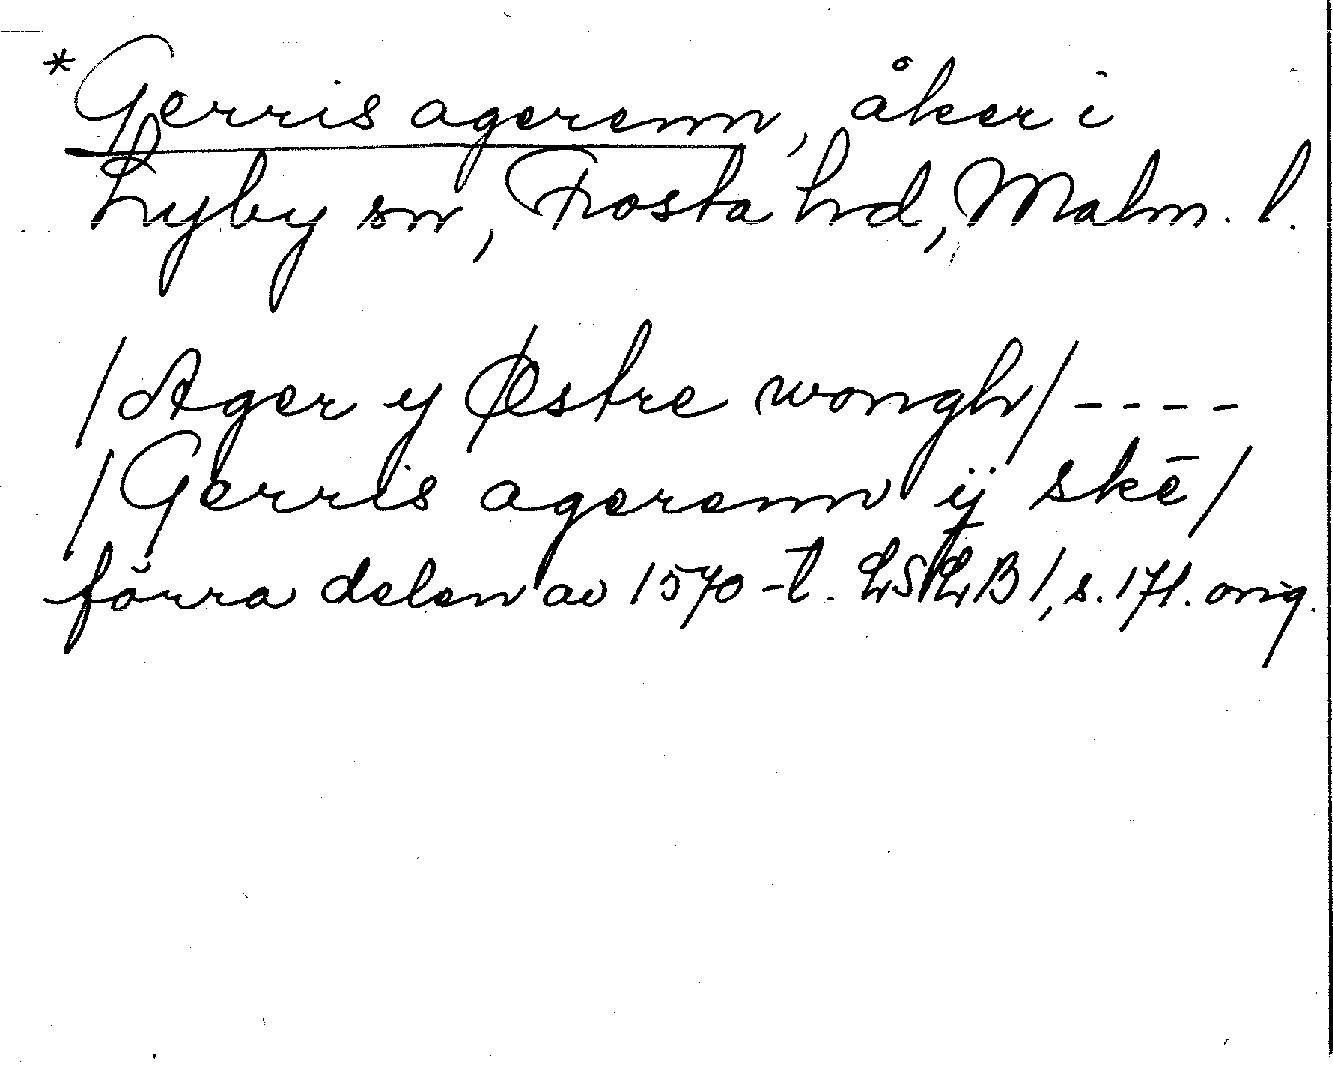 *Gerris agerenn, åker i
Lyby sn, Frosta hd, Malm. l.
/Ager y Østre wongh/ ----
/Gerris agerenn ÿ skē/
förra delen av 1570-t. LSLB 1, s. 171. orig.